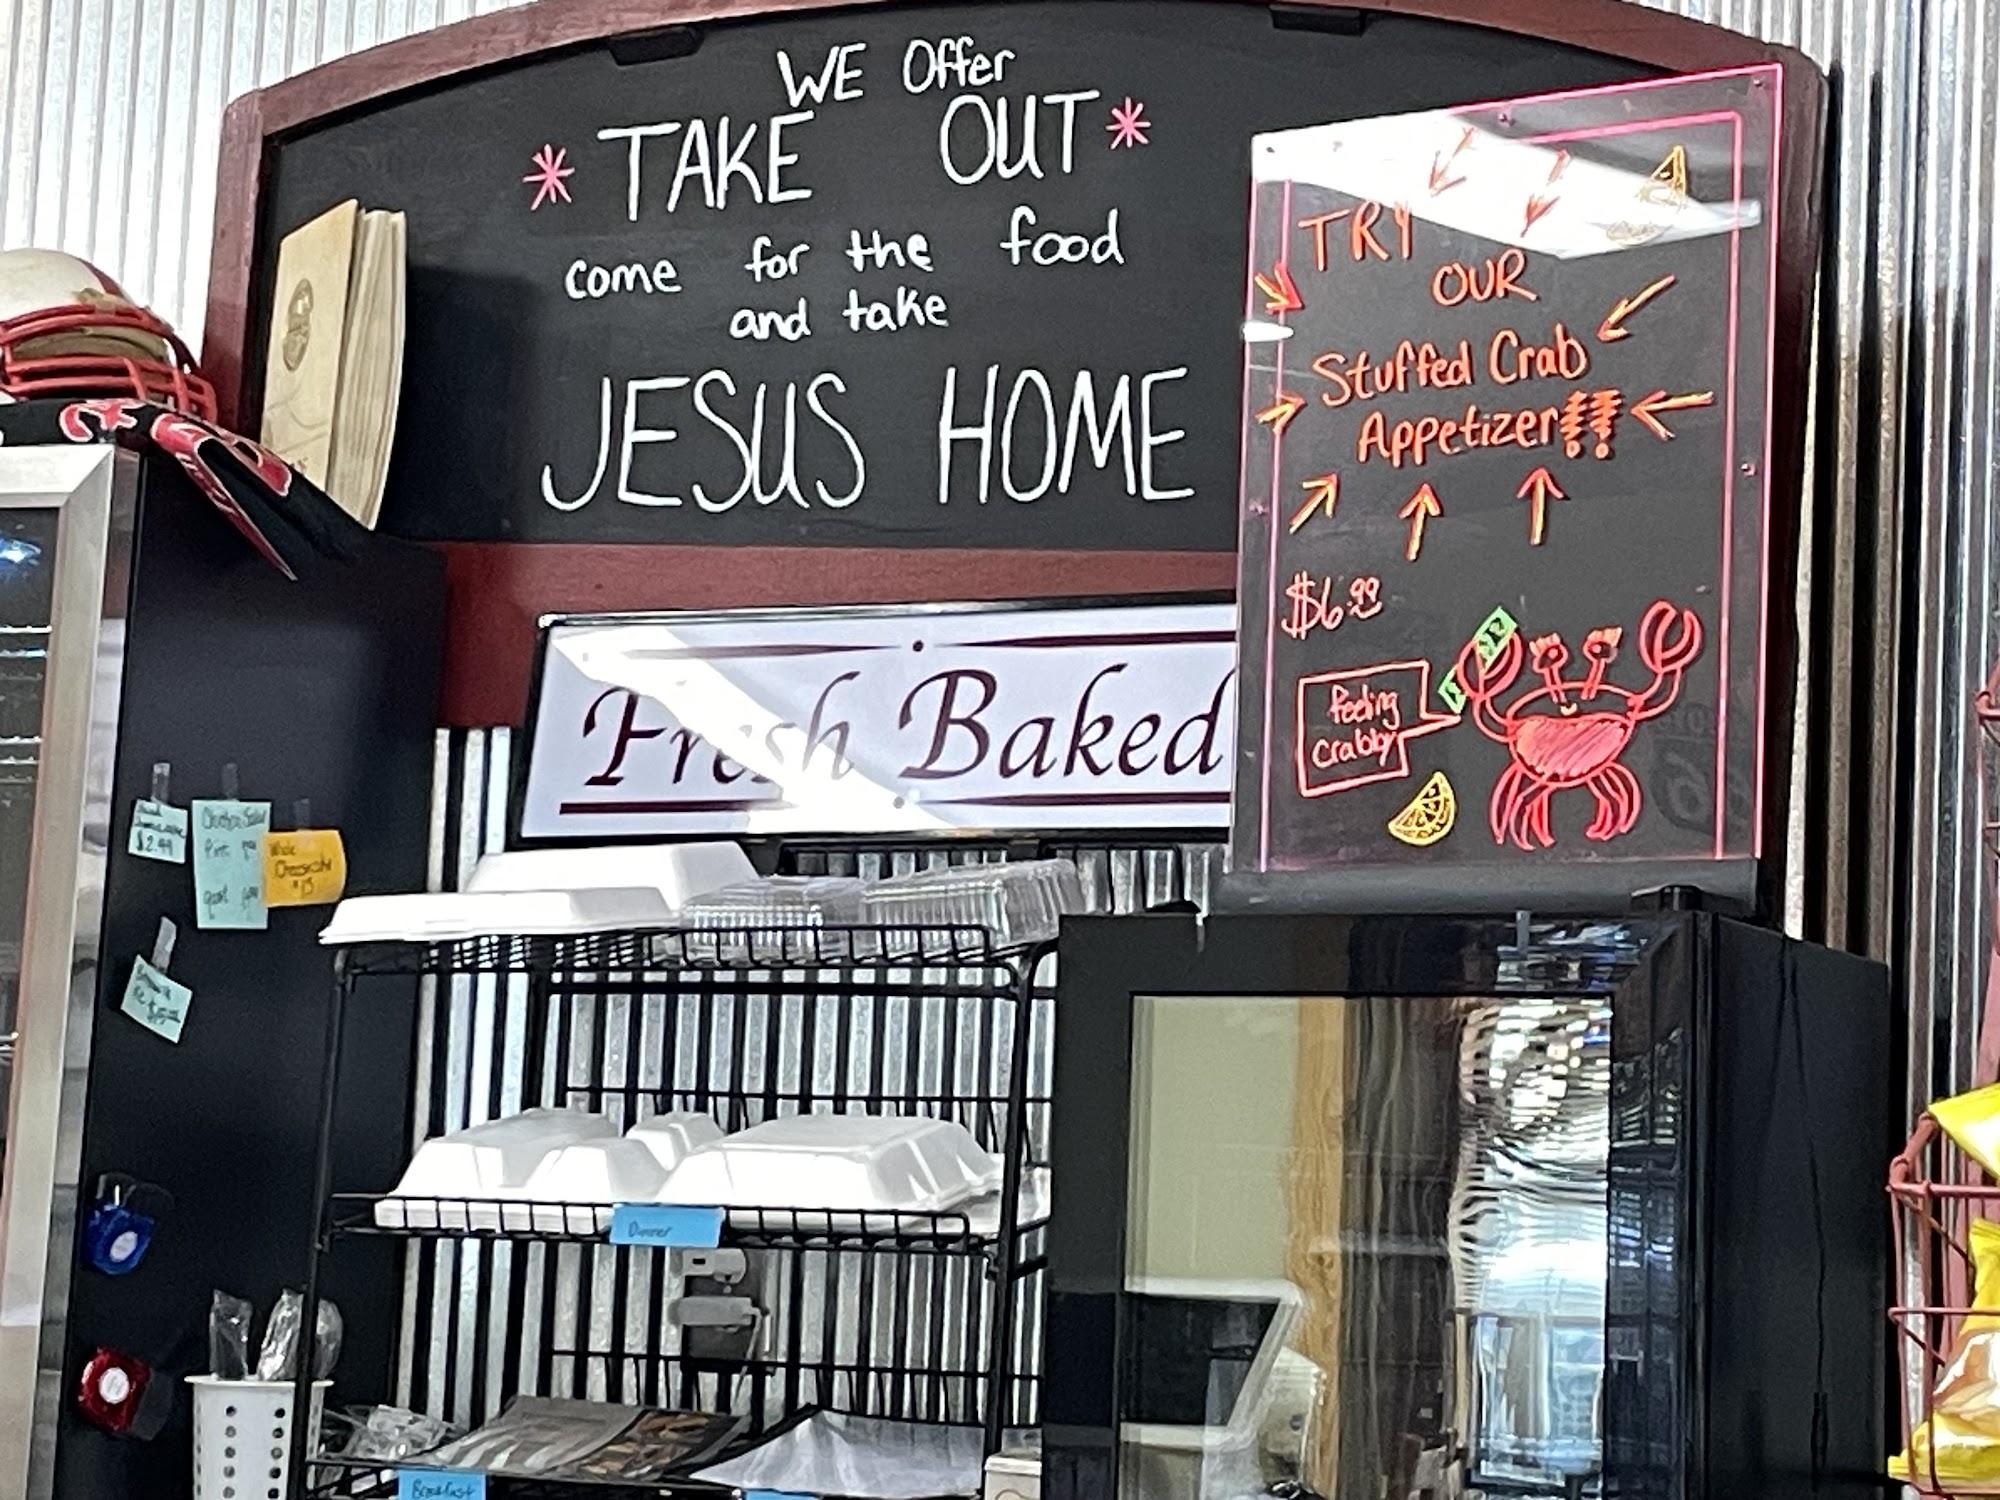 WE Offer
TAKE OUT
come for the food
and take
JESUS HOME
TRY
OUR
Stuffed Crab
Appetizer!!!!
$6.99
feeling
crabby
Fresh Baked
$2.99
Whole
Cheesecake
$15
Dinner
Breakfast